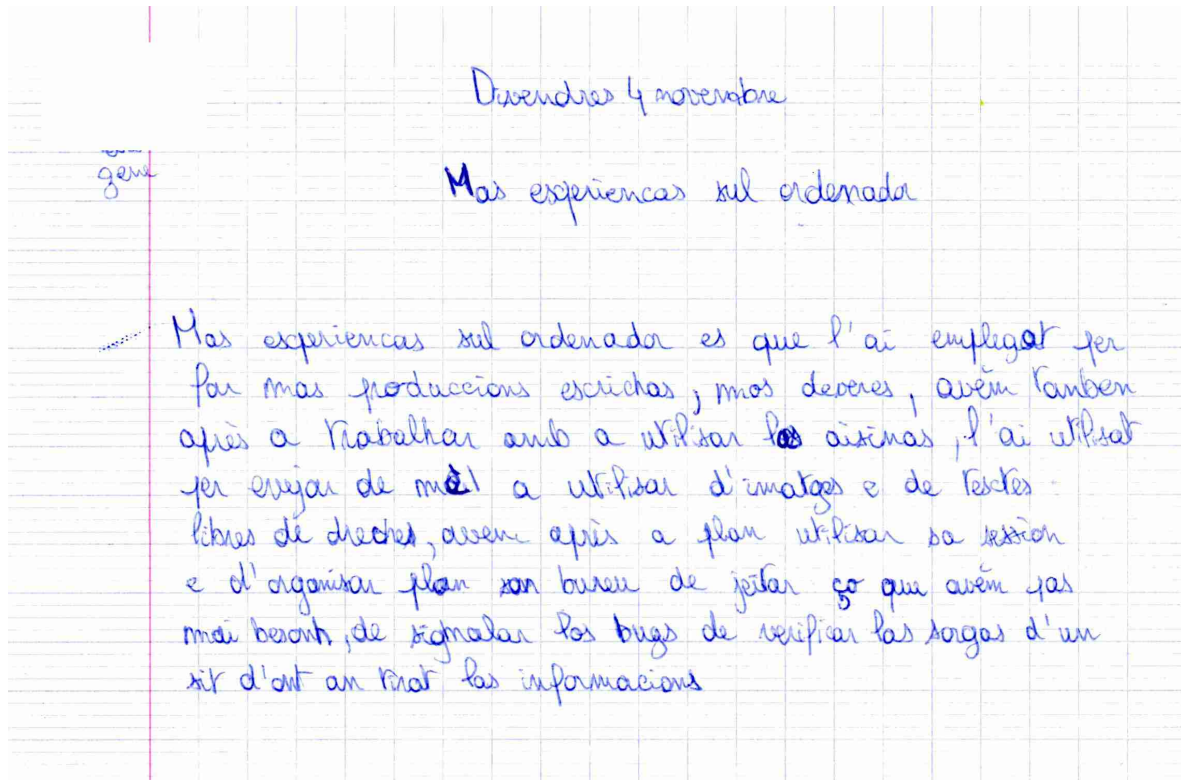 Divendres 4 novembre
gene
Mas experiencas sul ordenador
Mas experiencas sul ordenador es que l'ai emplegat per
far mas produccions escrichas, mos devers, avèm tanben
après a trabalhar amb a utilisar las aisinas, l'ai utilisat
per envejar de mèl a utilisar d'imatges e de textes
libres de dreches, avem après a plan utilisar sa session
e d'organisar plan son bureu de jeitar ço que avèm pas
mai besonh, de signalar los bugs de verificar las sorgas d'un
sit d'ont an tirat las informacions